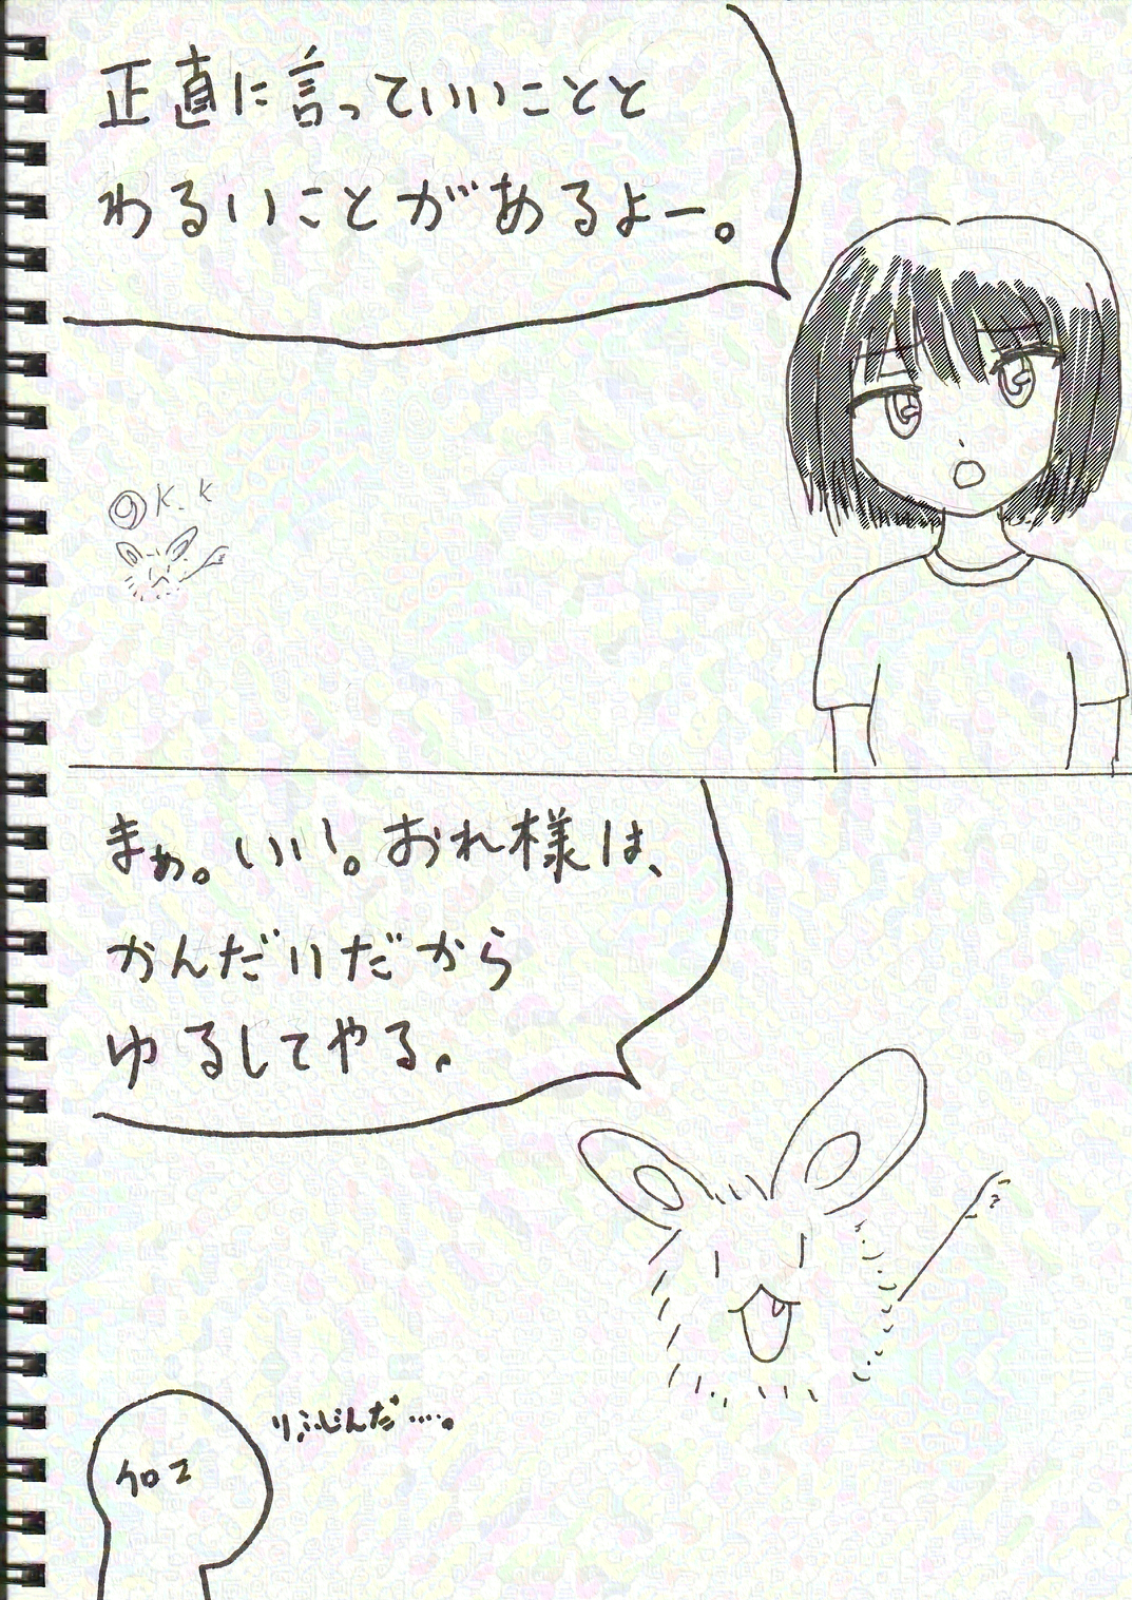 正直に言っていいことと
わるいことがあるよー。
@K.K
まぁ。いい。おれ様は、
かんだいだから
ゆるしてやる。
りふじんだ‥‥。
クロエ